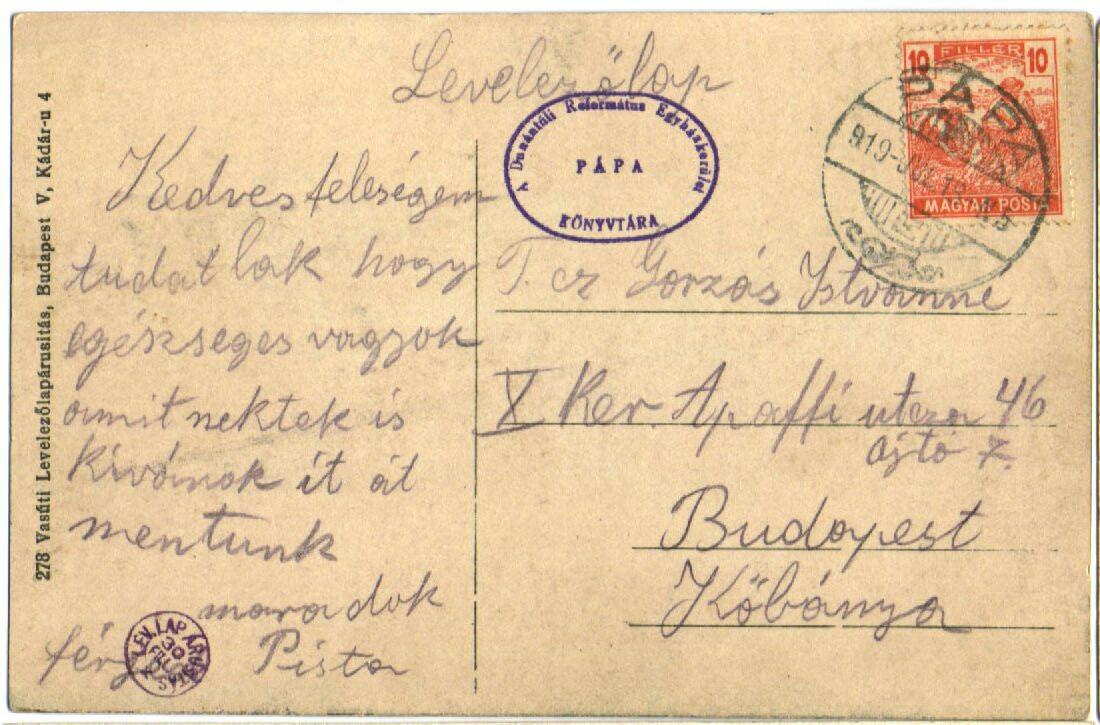 Levelezőlap
FILLÉR
10 10
MAGYAR POSTA
PÁPA
A Dunántúli Református Egyházkerület
PÁPA
KÖNYVTÁRA
Kedves feleségem
tudat lak hogy
egészseges vagyok
amit nektek is
kívánok it át
mentunk
maradok
férj Pista
T. cz Gorzás Istvánne
X Ker. Apaffi utcza 46
ajtó 7.
Budapest
Kőbánya
278 Vasúti Levelezőlapárusitás, Budapest V, Kádár-u 4
LEV. LAP ÁRUSITÁS
30
FILL